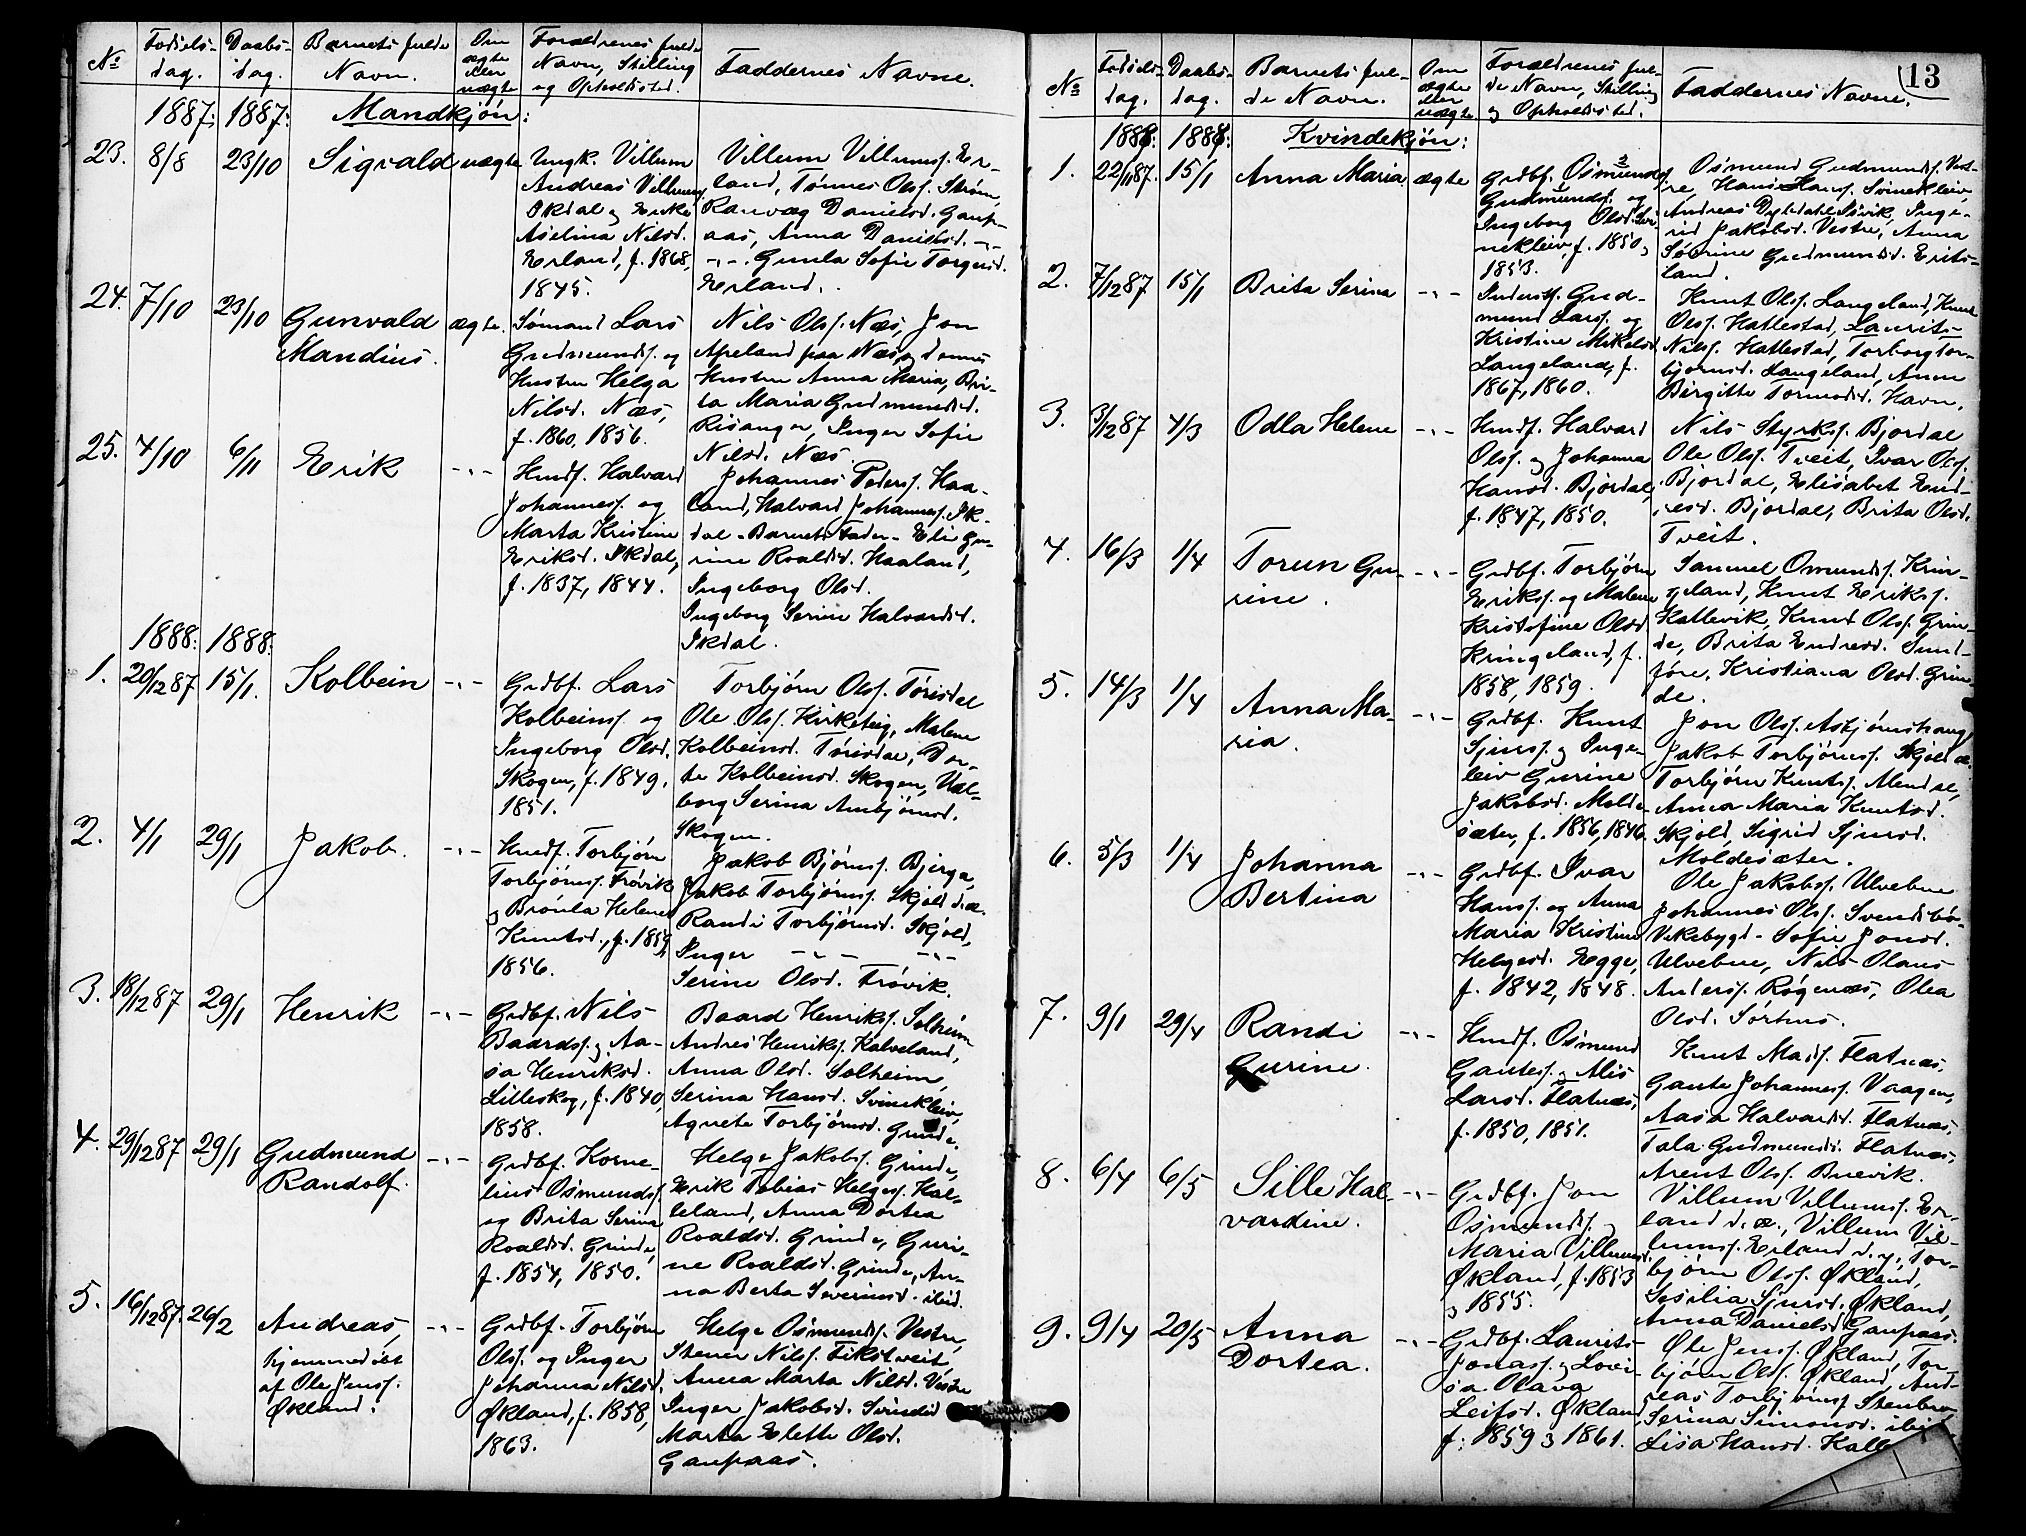 No
Fødsels-
dag.
Daabs-
dag.
Barnets fulde
Navn.
Om
ægte
eller
uægte
Forældrenes fulde
Navn, Stilling
og Opholdssted.
Faddernes Navne.
1887: 1887: Mandkjøn:
23. 8/8 23/10 Sigvald uægte
Ungk. Villum
Andreas Villums.
Ikdal og Enke
Aselina Nilsd.
Erland, f. 1868,
1845.
Villum Villumss. Er-
land, Tønnes Olss. Strøm,
Ranvæg Danielsd. Gaup-
aas, Anna Danielsd. -"-
-"- Gunla Sofie Torgersd.
Erland.
24. 7/10 23/10 Gunvald ægte.
Mandius.
Sømand Lars
Gudmunds. og
Hustru Helga
Nilsd. Næs,
f. 1860, 1856.
Nils Olss. Næs, Jon
Apeland paa Næs, og dennes
Hustru Anna Maria, Bri-
ta Maria Gudmundsd.
Risanger, Inger Sofie
Nilsd. Næs.
25. 4/10 6/11 Erik -"-
Husf. Halvard
Johanness. og
Marta Kristine
Eriksd. Ikdal,
f. 1837, 1844.
Johannes Peders. Haa-
land, Halvard Johanness. Ik-
dal - Barnets Fader - Eli Gu-
rine Roaldsd. Haaland,
Ingeborg Olsd.
Ingeborg Serine Halvardsd.
Ikdal.
1888: 1888:
1. 20/12 87 15/1. Kolbein -"-
Grdbf. Lars
Kolbeinss. og
Ingeborg Olsd.
Skogen, f. 1849,
1851.
Torbjørn Olss. Tørisdal
Ole Olss. Kirketeig, Malene
Kolbeinsd. Tørisdal, Dor-
te Kolbeinsd. Skogen, Val-
borg Serina Ambjørnsd.
Skogen.
2. 4/1 29/1 Jakob. -"-
Husf. Torbjørn
Torbjørnss. Frøvik
og Brønla Helene
Knutsd., f. 1859,
1856.
Jakob Bjørnss. Bjerga,
Jakob Torbjørnss. Skjold d.æ.
Randi Torbjørnsd. Skjold,
Inger -"- -"-
Serine Olsd. Frøvik.
3. 18/12 87 29/1 Henrik -"-
Grdbf. Nils
Baardss. og Aa-
sa Henriksd.
Lilleskog, f. 1840,
1858.
Baard Henrikss. Solheim
Andres Henrikss. Kalveland,
Anna Olsd. Solheim,
Serina Hansd. Svinekleiv,
Agnete Torbjørnsd. Grinde.
4. 29/12 87 29/1 Gudmund -"-
Randolf.
Grdbf. Korne-
lius Osmundss.
og Brita Serina
Roaldsd. Grinde,
f. 1854, 1850.
Helge Jakobss. Grinde,
Erik Tobias Helgess. Hal-
leland, Anna Dortea
Roaldsd. Grinde, Guri-
ne Roaldsd. Grinde, An-
na Berta Severinsd. ibid.
5. 16/12 87. 26/2 Andreas, -"-
hjemmedøbt
af Ole Jenss.
Økland.
Grdbf. Torbjørn
Olss. og Inger
Johanna Nilsd.
Økland, f. 1858,
1863.
Helge Osmundss. Vestre,
Stener Nilss. Fikstveit,
Anna Marta Nilsd. Vestre
Inger Jakobsd.
Marta Elette Olsd.
Gaupaas.
13
No
Fødsels-
dag.
Daabs-
dag.
Barnets ful-
de Navn.
Om
ægte
eller
uægte
Forældrenes ful-
de Navn, Stilling
og Opholdssted.
Faddernes Navne.
1888: 1888: Kvindekjøn:
1. 22/11 87. 15/1 Anna Maria ægte
Grdbf. Osmund
Gudmundss. og
Ingeborg Olsd. Svi-
nekleiv, f. 1850,
1853.
Osmund Gudmundss. Vest-
re, Hans Hanss. Svinekleiv,
Andreas Isvik, Inge-
rid Jakobsd. Vestre, Anna
Søvrine Gudmundsd. Erits-
land.
2. 7/12 87 15/1 Brita Serina -"-
Inderst Gud-
mund Larss. og
Kristine Mikelsd.
Langeland, f.
1867, 1860.
Knut Olss. Langeland, Knut
Olss. Hattestad, Laurits
Nilss. Hattestad, Torborg Tor-
bjørnsd. Langeland, Anne
Birgitte Tormodsd. Havn.
3. 3/12 87 4/3 Odla Helene -"-
Husf. Halvard
Olss. og Johanna
Hansd. Bjordal,
f. 1847, 1850.
Nils Styrkss. Bjordal
Ole Olss. Tveit, Ivar Olss.
Bjordal, Elisabet End-
resd. Bjordal, Brita Olsd.
Tveit.
4. 16/3 1/4 Torun Gu- -"-
rine.
Grdbf. Torbjørn
Erikss. og Malene
Kristofine Olsd.
Kringeland, f.
1858, 1859.
Samuel Omundss. Krin-
geland, Knut Erikss.
Hattevik, Knud Olss. Grin-
de, Brita Endresd. Sund-
føre, Kristiana Olsd. Grin-
de.
5. 14/3 1/4 Anna Ma- -"-
ria.
Grdbf. Knut
Sjurss. og Inge-
leiv Gurine
Jakobsd. Molde-
sæter, f. 1856, 1846.
Jon Olss. Asbjørnshaug,
Jakob Torbjørnss. Skjold d.
Torbjørn Knutss. Alendal,
Anna Maria Knutsd.
Skjold, Sigrid Sjursd.
Moldesæter.
6. 5/3 1/4 Johanna -"-
Bertina
Grdbf. Ivar
Hanss. og Anna
Maria Kristine
Helgesd. Egge,
f. 1842, 1848.
Ole Jakobss. Ulvebne
Johannes Olss. Svendsbø-
Vikebygd - Sofie Jonsd.
Ulvebne, Nils Olaus
Anderss. Røgenæs, Olea
Olsd. Sørhus.
7. 9/1 29/4 Randi -"-
Gurine.
Husf. Osmund
Gautess. og Alis
Larsd. Flatnæs,
f. 1850, 1851.
Knut Madss. Flatnæs,
Gaute Johanness. Vaagen,
Aasa Halvardsd. Flatnæs,
Tala Gudmundsd. Flatnæs,
Arent Olss. Buevik.
8. 6/4 6/5 Sille Hal- -"-
vardine.
Grdbf. Jon
Osmundss. og
Maria Villumsd.
Økland, f. 1853
og 1855.
Villum Villumss. Er-
land d.æ., Villum Vil-
lumss. Erland d.y., Tor-
bjørn Olss. Økland,
Sesilia Sjursd. Økland,
Anna Danielsd. Gaupaas.
9. 9/4 20/5 Anna -"-
Dortea.
Grdbf. Laurits
Jonass. og Lovi-
sa Olava
Leifsd. Økland
f. 1859 og 1861.
Ole Jenss. Økland, Tor-
bjørn Olss. Økland, And-
reas Torbjørnss. Stenbru,
Serina Simonsd. ibid.
Lisa Hansd.